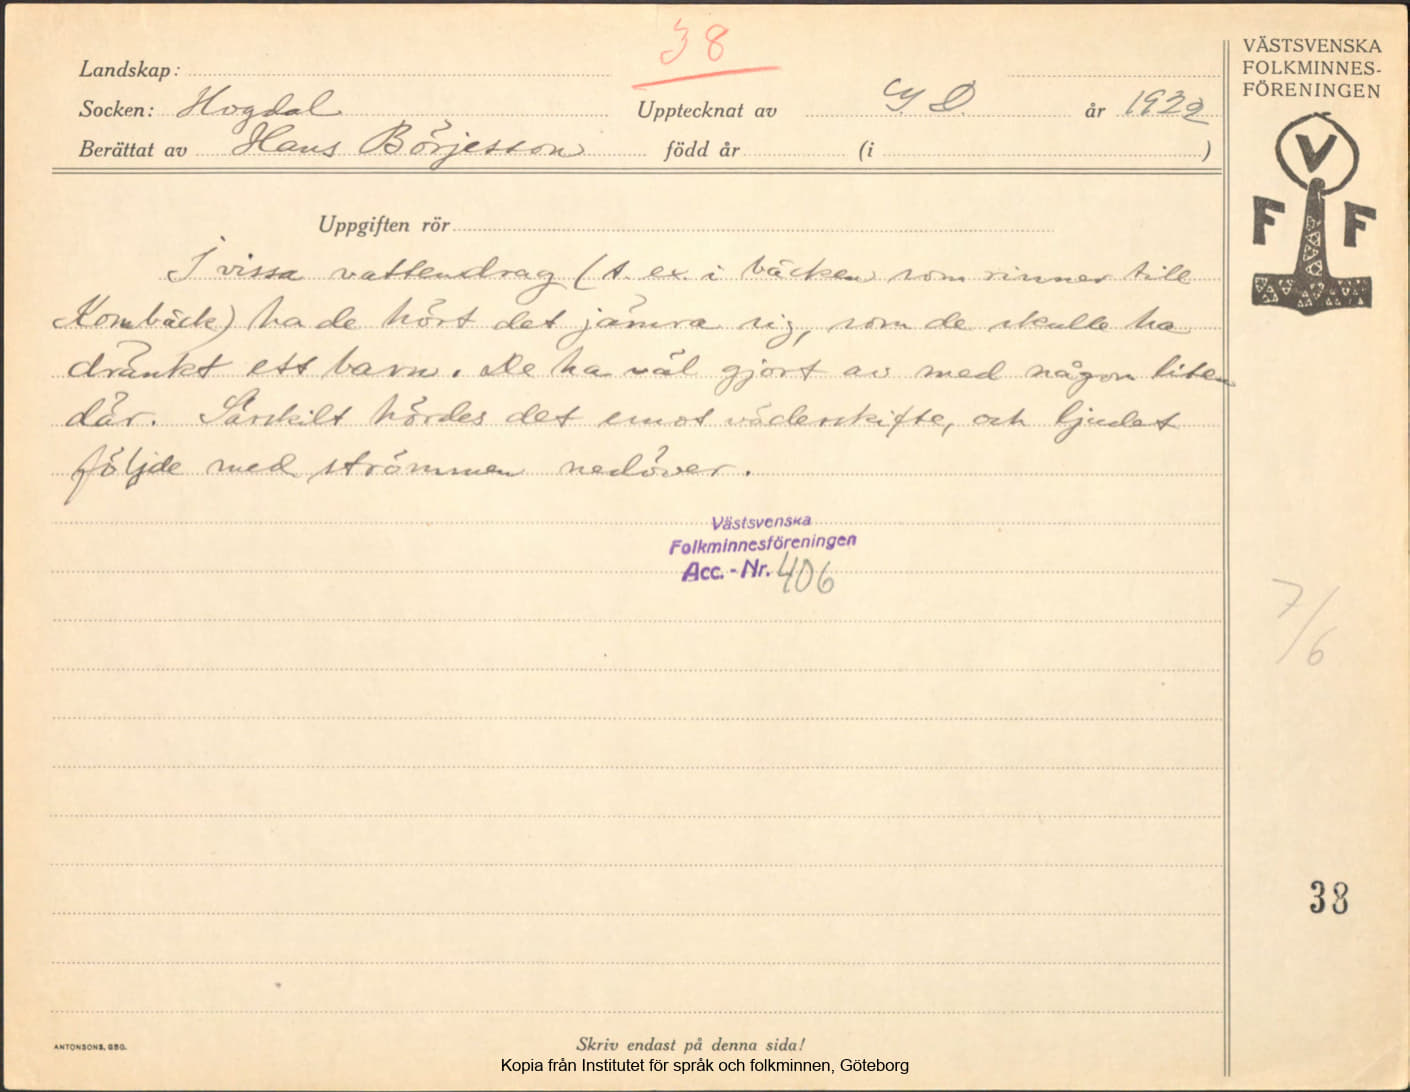 38
Landskap:
Socken: Hogdal
Upptecknat av G. D. år 1922
Berättat av Hans Börjesson född år (i )
VÄSTSVENSKA
FOLKMINNES-
FÖRENINGEN
V
F F
Uppgiften rör
I vissa vattendrag (t. ex. i bäcken som rinner till
Kornbäck) ha de hört det jämra sig, som de skulle ha
dränkt ett barn. De ha väl gjort av med någon liten
där. Särskilt hördes det emot väderskifte, och ljudet
följde med strömmen nedöver.
Västsvenska
Folkminnesföreningen
Acc. - Nr. 406
7/6
38
ANTONSONS, GBG.
Skriv endast på denna sida!
Kopia från Institutet för språk och folkminnen, Göteborg